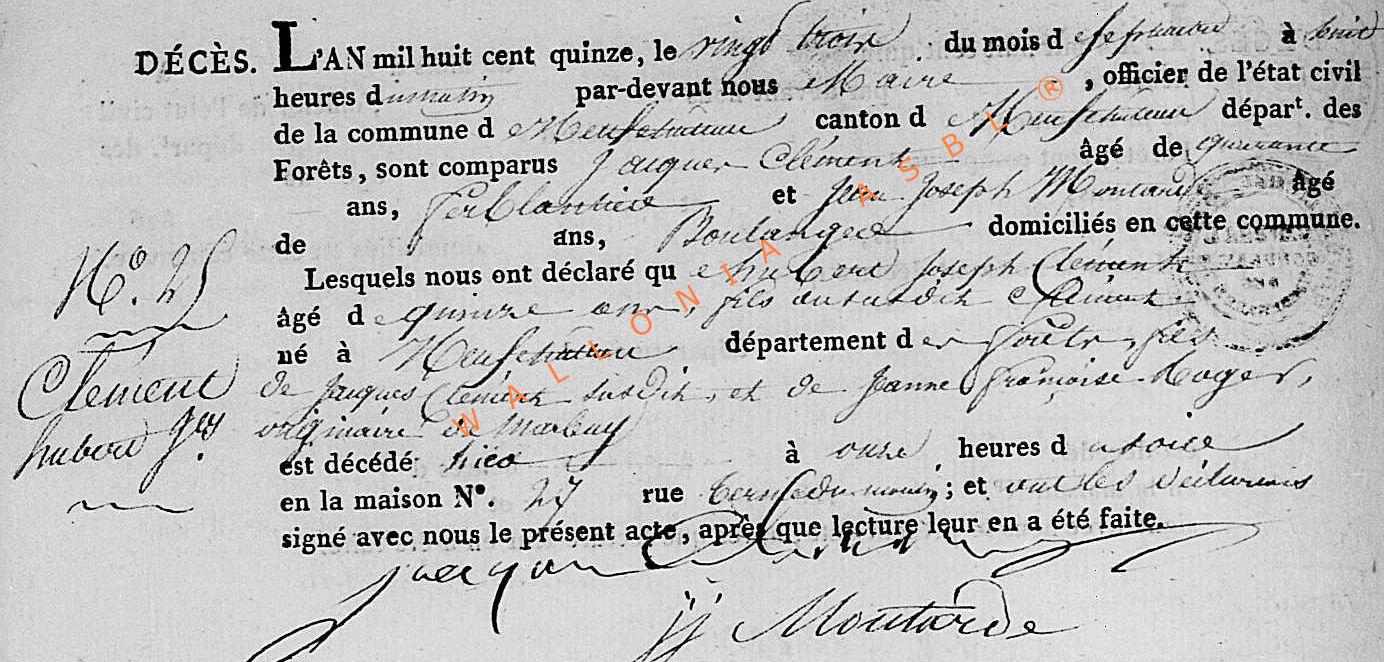 DÉCÈS. L'AN mil huit cent quinze, le vingt trois du mois de septembre à huit
heures du matin par-devant nous Maire , officier de l'état civil
de la commune de Neufchateau canton de Neufchateau départ. des
Forêts, sont comparus Jacques Clément âgé de quarante
ans, ferblantier et Jean Joseph âgé
de ans, Boulanger domiciliés en cette commune.
Lesquels nous ont déclaré que hubert Joseph Clément
âgé de quinze ans, fils du susdit Clément
né à Neufchateau département des forêts, fils
de Jacques Clément susdit, et de Jeanne françoise Roger,
originaire de Marbay
est décédé hier à onze heures du soir
en la maison N°. 27 rue ; et ont les déclarans
signé avec nous le présent acte, après que lecture leur en a été faite.
N°. 25
Clément
hubert Jph
jacques Clement
jj Moutarde
WALLONIA ASBL ®